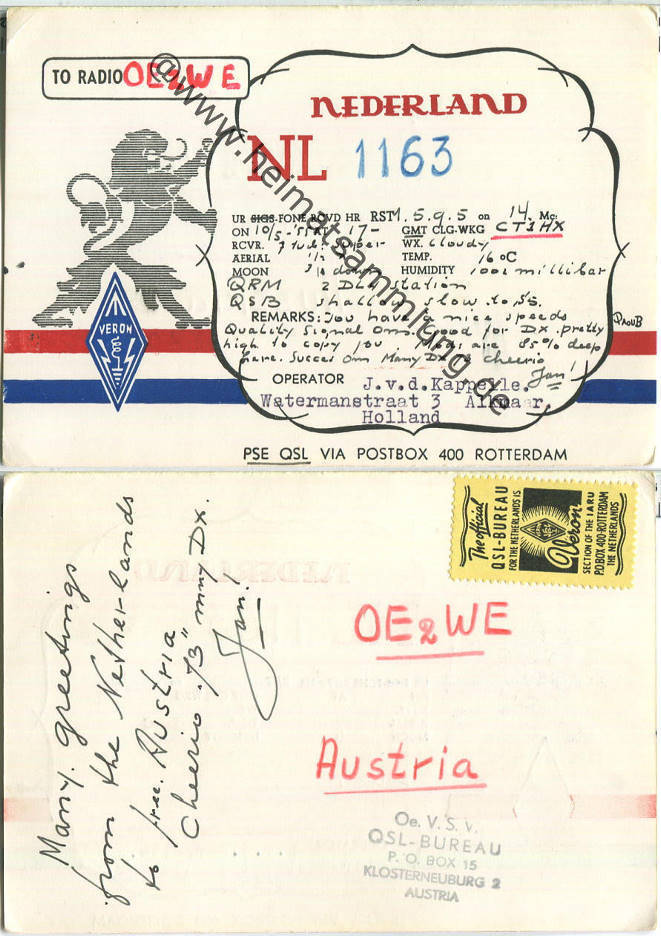 TO RADIO OE2WE
NEDERLAND
NL 1163
UR SIGS-FONE RCVD HR RST 5.9.5 on 14 Mc.
ON 10/5-'5 17- GMT CLG-WKG CT3HX
RCVR. WX. Cloudy
AERIAL TEMP. 16 °C
MOON HUMIDITY 1001 millibar
QRM 2 station
QSB shallow slow to
REMARKS: You have a nice speeds
Quality Signal Om. Good for DX. pretty
high to copy you. are 85% deep
here. Succes Om Many Dx. cheerio
Jan!
PA0UB
VERON
OPERATOR J.v.d.Kappelle.
Watermanstraat 3 Alkmaar,
Holland
PSE QSL VIA POSTBOX 400 ROTTERDAM
@www.heimatsammlung.de
The official
QSL-BUREAU
FOR THE NETHERLANDS IS
Veron
SECTION OF THE I.A.R.U
P.O.BOX 400-ROTTERDAM
THE NETHERLANDS
Many greetings
from the Netherlands
to free Austria
Cheerio 73" mny Dx.
Jan!
OE2WE
Austria
Oe. V. S. V.
QSL-BUREAU
P. O. BOX 15
KLOSTERNEUBURG 2
AUSTRIA